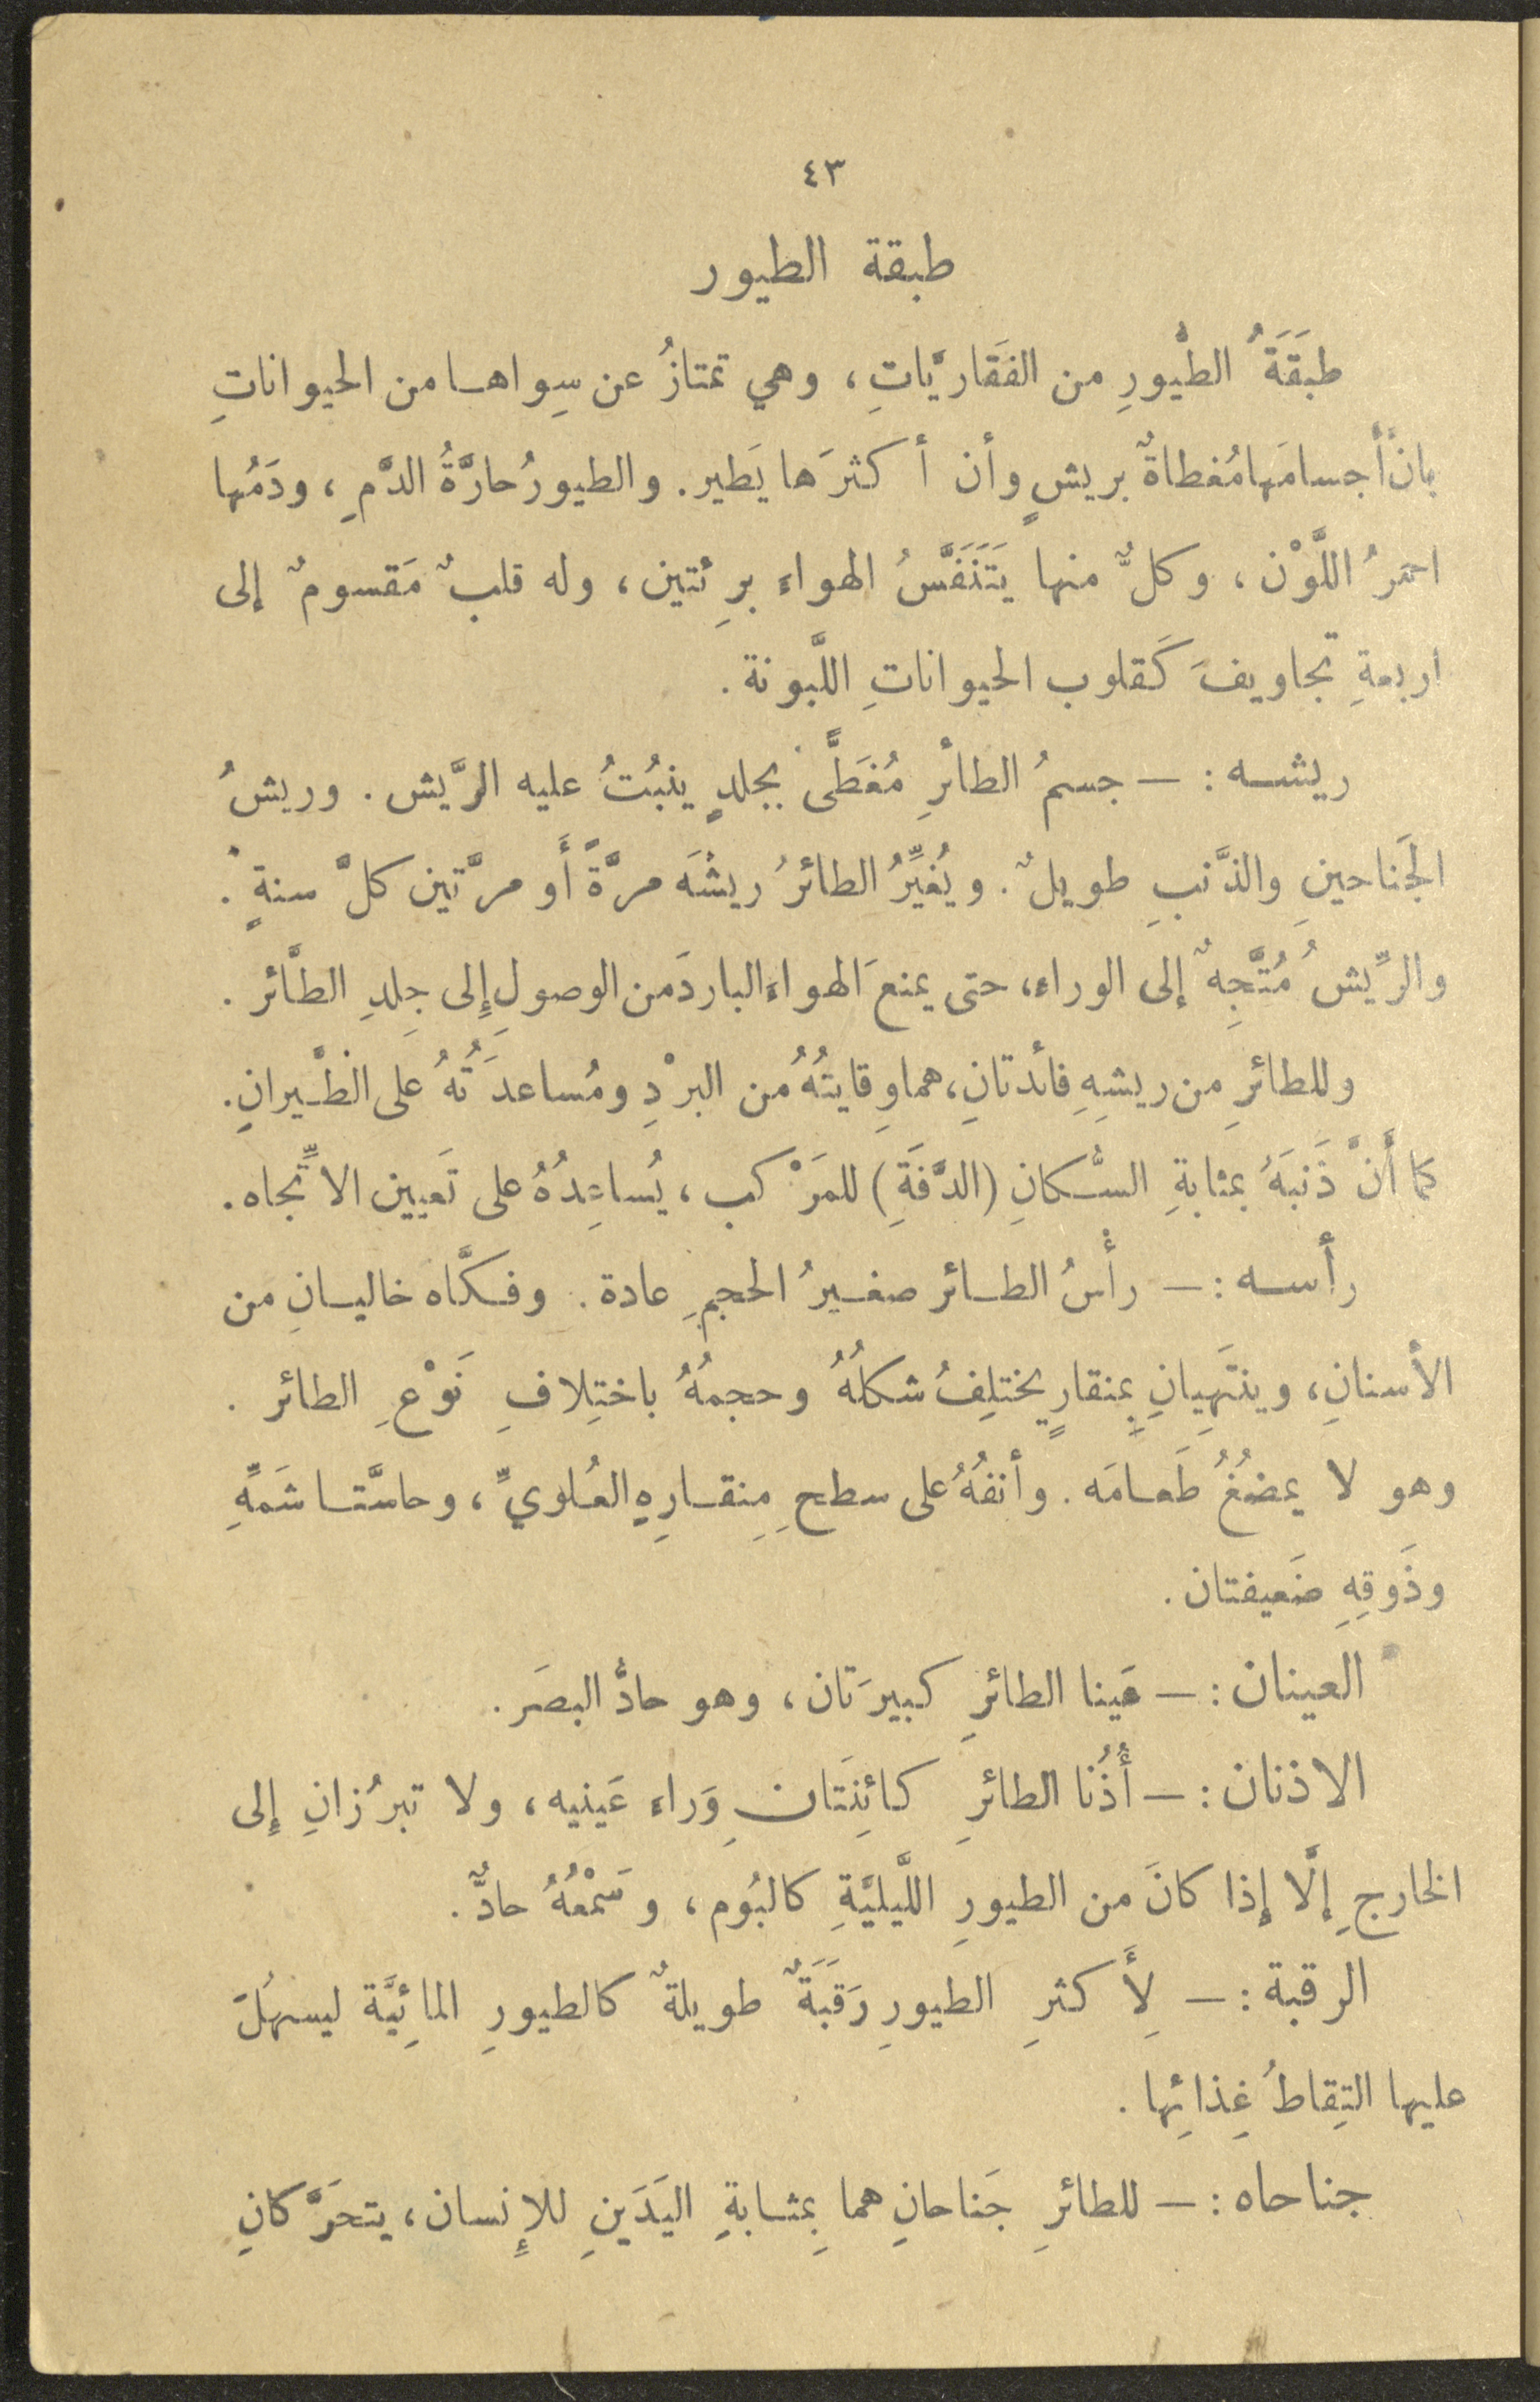 ٤٣
طبقة الطيور
طبقَةَُ الطُّيورِ من الفَقَاريَّاتِ، وهي تمتازُ عن سِواهـا من الحيواناتِ
بانَّ أجسامَها مُغطاةٌ بريشٍ وأن أكثرَها يَطير. والطيورُ حارَّةُ الدَّمِ، ودَمُها
احمرُ اللَّوْن، وكلٌّ منها يَتَنَفَّسُ الهواءَ برِئتين، وله قلبٌ مَقسومٌ إلى
اربعةِ تجاويفَ كَقلوب الحيواناتِ اللَّبونة.
ريشـه : — جسمُ الطائرِ مُغَطًّى بجلدٍ ينبُتُ عليه الرَّيش. وريشُ
الجَناحينِ والذَّنبِ طويلٌ. ويُغيِّرُ الطائرُ ريشَهُ مرَّةً أَو مرَّتين كلَّ سنةٍ.
والرِّيشُ مُتَّجِهٌ إلى الوراء، حتى يمنعَ الهواءَ الباردَ من الوصولِ إِلى جِلدِ الطَّائر.
وللطائرِ من ريشِهِ فائدتانِ، هما وِقايتُهُ من البرْدِ ومُساعدَتُهُ على الطَّيرانِ.
كما أَنَّ ذَنبَهُ بمثابةِ السُّكانِ (الدَّفَةِ) للمَرْكب، يُساعِدُهُ على تَعيين الاتِّجاه.
رأسـه : — رأْسُ الطـائر صغـيرُ الحجمِ عادة. وفكَّاه خاليـانِ من
الأسنانِ، وينتَهِيانِ بِمنقارٍ يختلِفُ شكلُهُ وحجمُهُ باختِلافِ نَوْعِ الطائر.
وهو لا يمضُغُ طَعـامَه. وأنفُهُ على سطحِ مِنقـارِهِ العُلويِّ، وحاسَّتـا شَمِّهِ
وذَوقِهِ ضَعيفتان.
العينان : — عَينا الطائرِ كبيرَتان، وهو حادُّ البصَر.
الاذنان : — أُذُنا الطائرِ كائِنَتانِ وَراء عَينيه، ولا تبرُزانِ إِلى
الخارجِ إلَّا إِذا كانَ من الطيورِ اللَّيليَّةِ كالبُوم، وسَمْعُهُ حادٌّ.
الرقبة : — لِأَكثرِ الطيورِ رَقَبَةٌ طويلةٌ كالطيورِ المائِيَّة ليسهُلَ
عليها التِقاطُ غِذائِها.
جناحاه : — للطائرِ جَناحانِ هما بِمثـابةِ اليَدَينِ للإِنسان، يتحَرَّكانِ